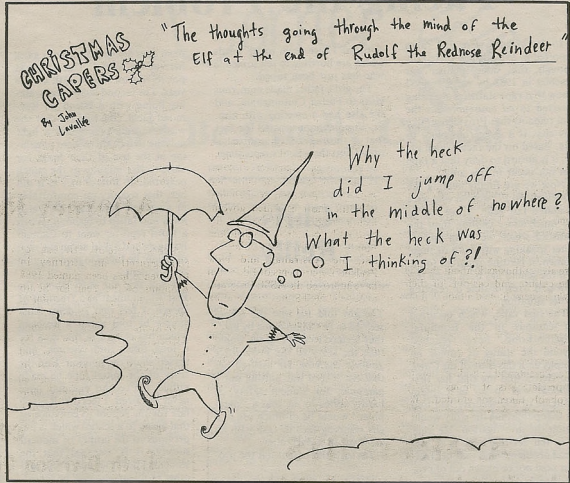 CHRISTMAS
CAPERS
By John
Lavallée
"The thoughts going through the mind of the
Elf at the end of Rudolf the Rednose Reindeer"
Why the heck
did I jump off
in the middle of nowhere?
What the heck was
I thinking of?!